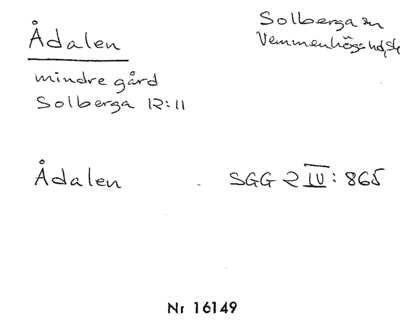 Ådalen
Solberga sn
Vemmenhögs hd, Sk
mindre gård
Solberga 12:11
Ådalen - SGG 2 IV: 865
Nr 16149